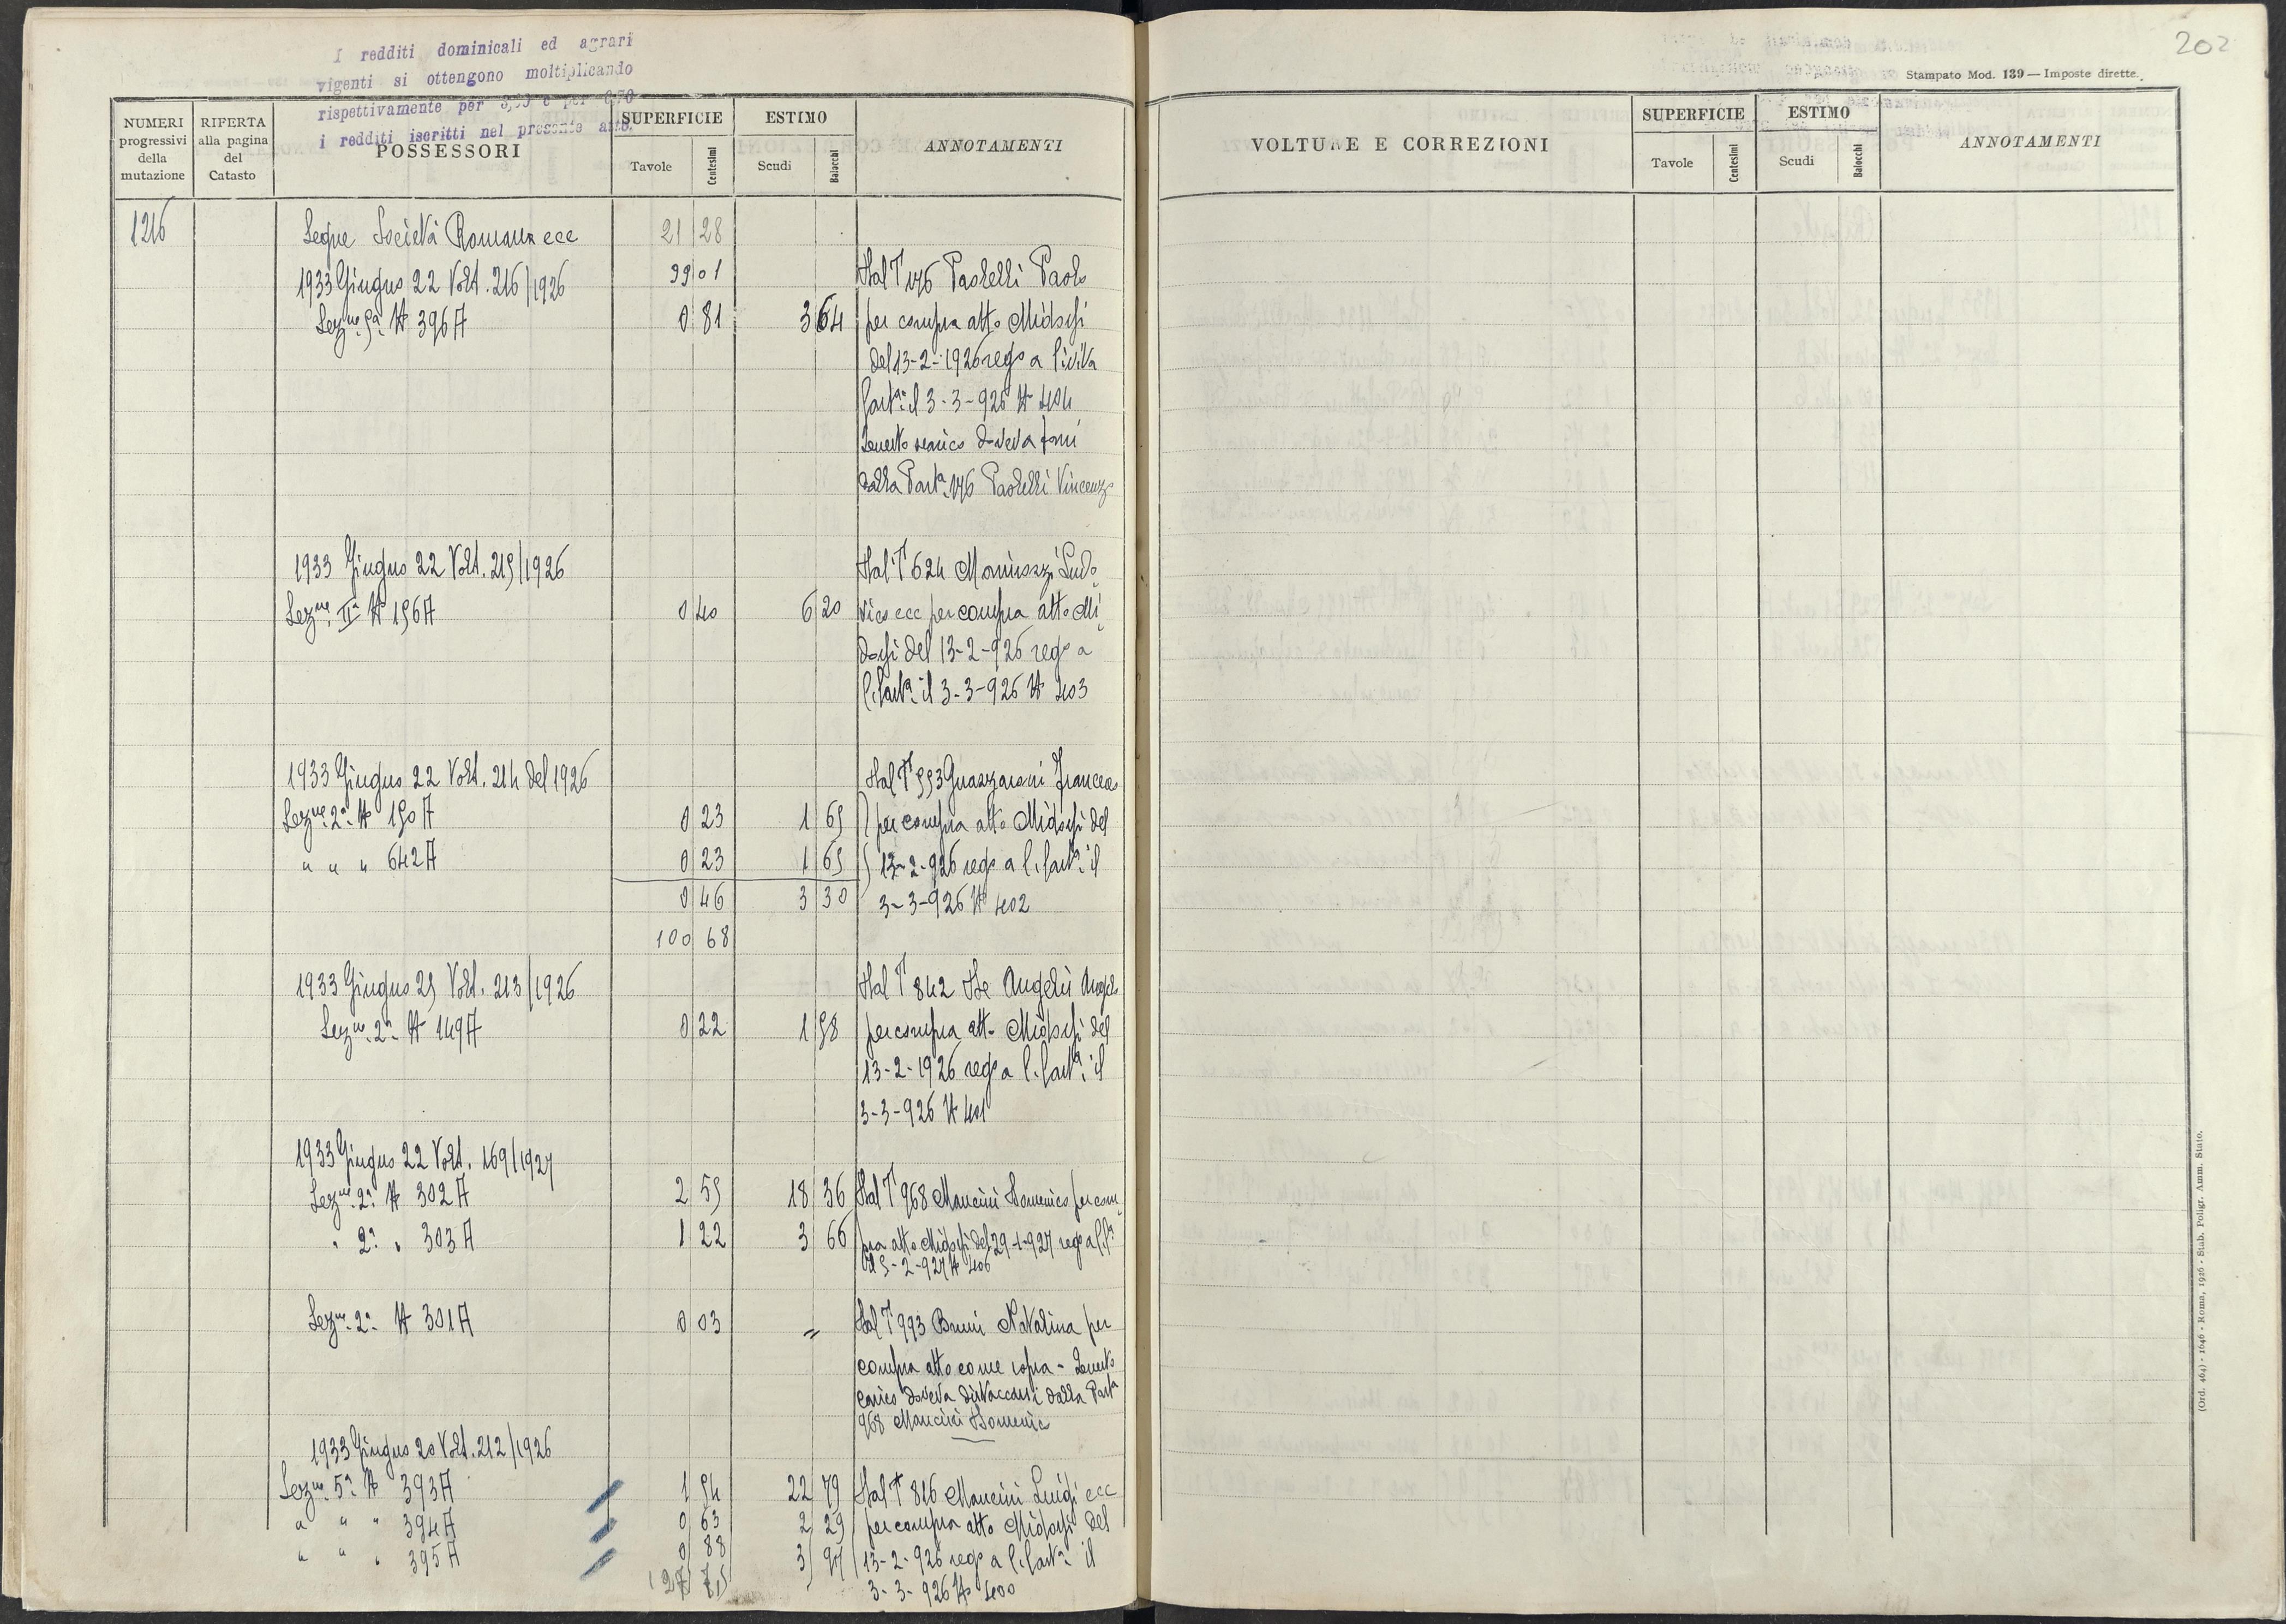 I redditi dominicali ed agrari
vigenti si ottengono moltiplicando
rispettivamente per e per
i redditi iscritti nel presente atto.
NUMERI progressivi della mutazione
RIFERTA alla pagina del Catasto
POSSESSORI
SUPERFICIE
Tavole
Centesimi
ESTIMO
Scudi
Baiocchi
ANNOTAMENTI
1216 Segue Società Romana ecc 21 28
1933 Giugno 22 Volt. 216/1926 99 01 Dal P 146 Paolelli Paolo
Sezne 5a N 396A 0 81 3 64 per compra atto Midossi
del 13-2-1926 rego a Civita
Castna il 3-3-926 N 404
dalla Parta 146 Paolelli Vincenzo
1933 Giugno 22 Volt. 215/1926 Dal P 624 Ludo
Sezne IIa N 156A 0 40 6 20 vico ecc per compra atto Mi
dossi del 13-2-926 rego a
C. Casta il 3-3-926 N 403
1933 Giugno 22 Volt. 214 del 1926 Dal P 553 Francesco
Sezne 2a N 150A 0 23 1 65 per compra atto Midossi del
" " " 642A 0 23 1 65 13-2-926 rego a C. Casta il
0 46 3 30 3-3-926 N 402
100 68
1933 Giugno 25 Volt. 213/1926 Dal P 842 De Angelis Angelo
Sezne 2a N 149A 0 22 1 98 per compra atto Midossi del
13-2-1926 rego a C. Casta il
3-3-926 N 401
1933 Giugno 22 Volt. 169/1927
Sezne 2a N 302A 2 55 18 36 Dal P 968 Mancini Domenico per com
" 2a " 303A 1 22 3 66 pra atto Midossi del 29-1-927 rego a C. Ca
5-2-927 N 406
Sezne 2a N 301A 0 03 " Dal P 993 Bruni Natalina per
compra atto come sopra -
carico doveva distaccarsi dalla Parta
968 Mancini Domenico
1933 Giugno 20 Volt. 212/1926
Sezne 5a N 393A 1 54 22 79 Dal P 816 Mancini Luigi ecc
" " " 394A 0 63 2 29 per compra atto Midossi del
" " " 395A 0 88 3 97 13-2-926 rego a C. Casta il
3-3-926 N 400
202
Stampato Mod. 139 — Imposte dirette.
VOLTURE E CORREZIONI
SUPERFICIE
Tavole
Centesimi
ESTIMO
Scudi
Baiocchi
ANNOTAMENTI
(Ord. 464) - 1646 - Roma, 1926 - Stab. Poligr. Amm. Stato.